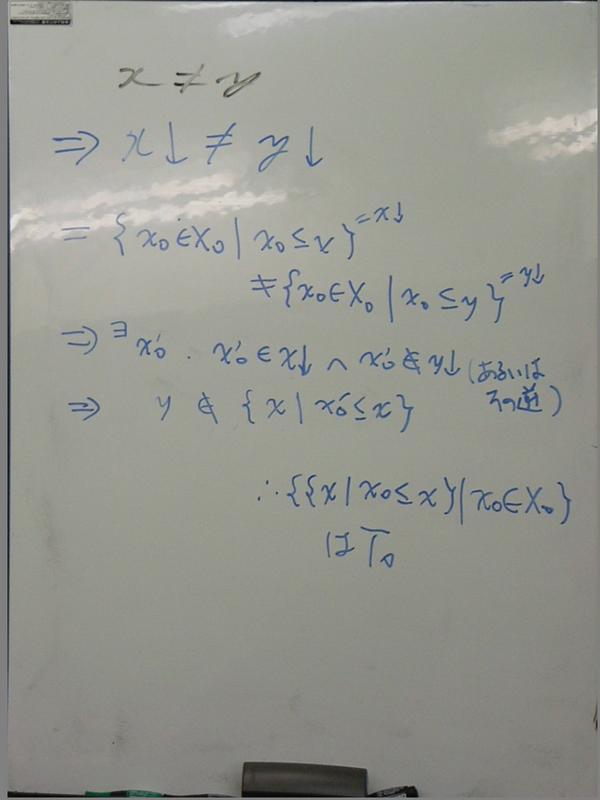 x ≠ y
⇒ x↓ ≠ y↓
= {x₀∈X₀ | x₀≤x} = x↓
≠ {x₀∈X₀ | x₀≤y} = y↓
⇒ ∃x₀′ . x₀′∈x↓ ∧ x₀′∉y↓ (あるいは
その逆)
⇒ y ∉ {x | x₀′≤x}
∴ {{x | x₀≤x} | x₀∈X₀}
は T₀